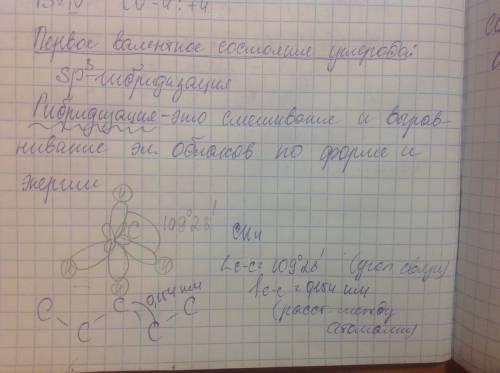 Первое валентное состояние углерода:
Sp³-гибридизация
Гибридизация-это смешивание и вырав-
нивание эл. облаков по форме и
энергии
H
C 109°28'
H H
H
CH4
∠c-c= 109°28' (угол связи)
lc-c = 0,154 нм
(расст между
атомами)
0,154 нм
C C C
C C